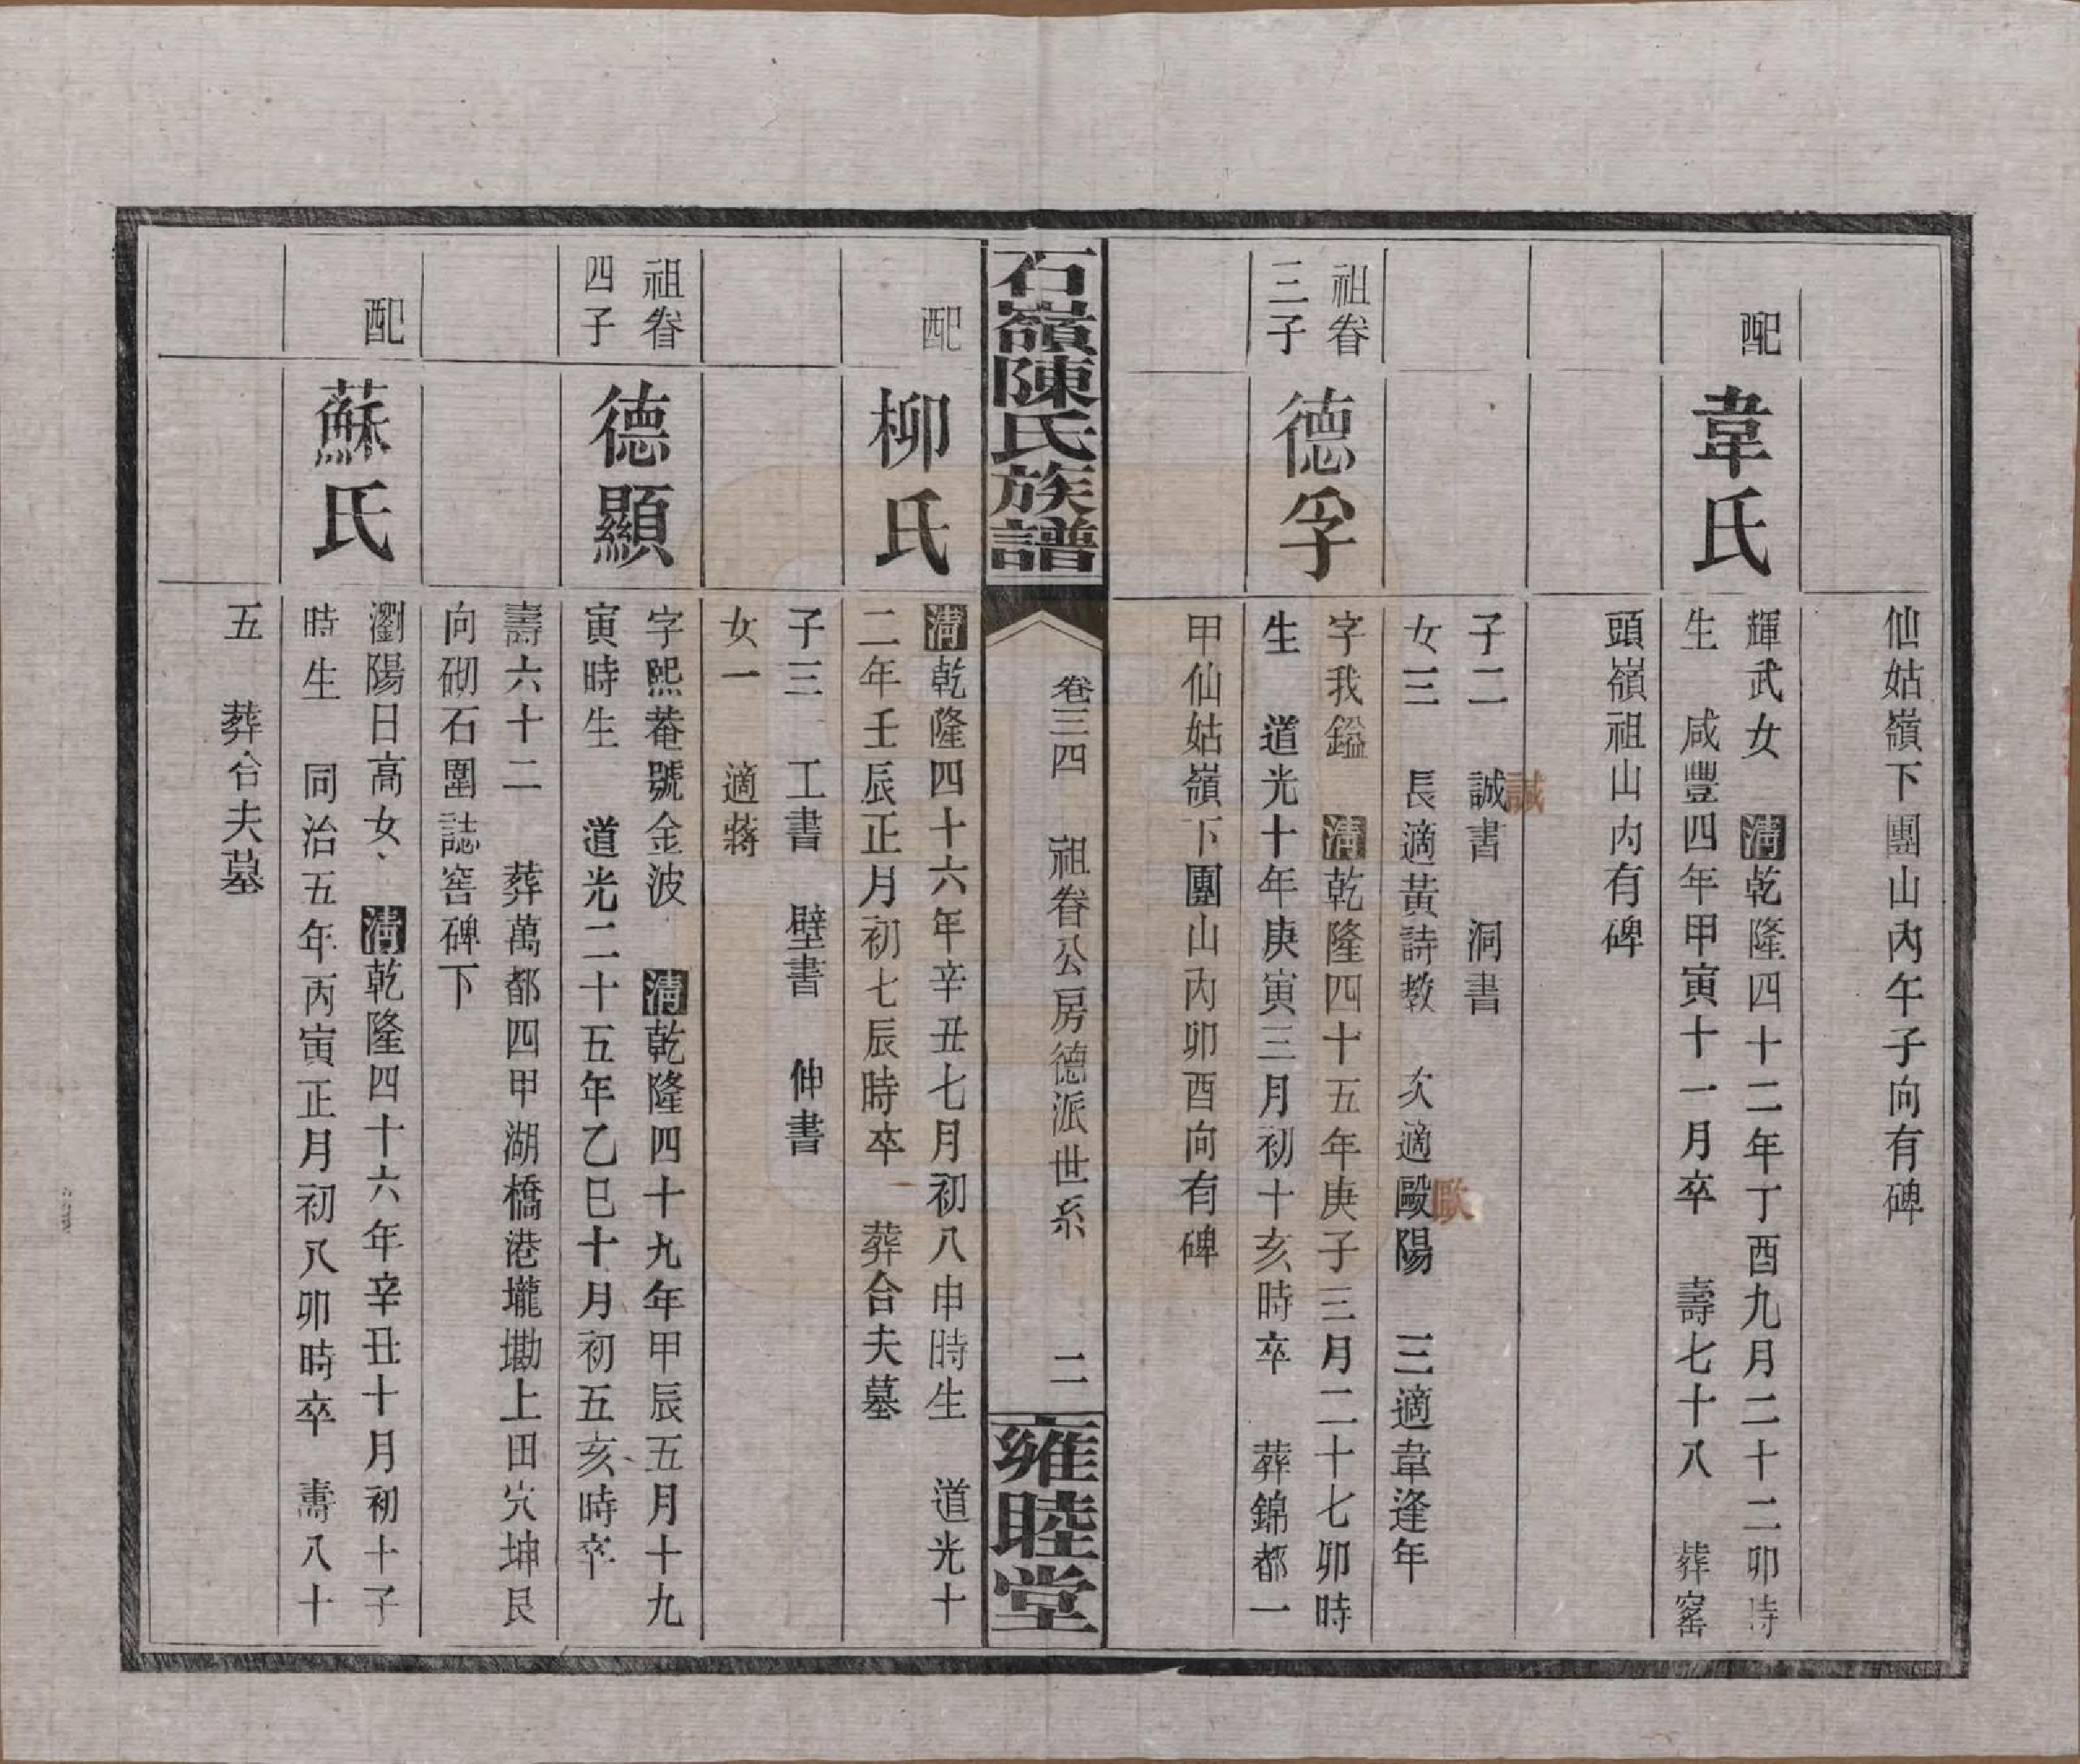 仙姑嶺下團山內午子向有碑
配
韋氏
輝武女　清乾隆四十二年丁酉九月二十二卯時
生　咸豐四年甲寅十一月卒　壽七十八　葬窰
頭嶺祖山内有碑
子二　誠書　洞書
誠
女三　長適黃詩教　次適歐陽　三適韋逢年
歐
祖眷
三子
德孚
字我鎰　清乾隆四十五年庚子三月二十七卯時
生　道光十年庚寅三月初十亥時卒　葬錦都一
甲仙姑嶺下團山内卯酉向有碑
石嶺陳氏族譜
卷三四　祖眷公房德派世系　二
雍睦堂
配
柳氏
清乾隆四十六年辛丑七月初八申時生　道光十
二年壬辰正月初七辰時卒　葬合夫墓
子三　工書　壁書　伸書
女一　適蔣
祖眷
四子
德顯
字熙菴號金波　清乾隆四十九年甲辰五月十九
寅時生　道光二十五年乙巳十月初五亥時卒
壽六十二　葬萬都四甲湖橋港壠墈上田穴坤艮
向砌石圍誌窖碑下
配
蘇氏
瀏陽日高女　清乾隆四十六年辛丑十月初十子
時生　同治五年丙寅正月初八卯時卒　壽八十
五　葬合夫墓